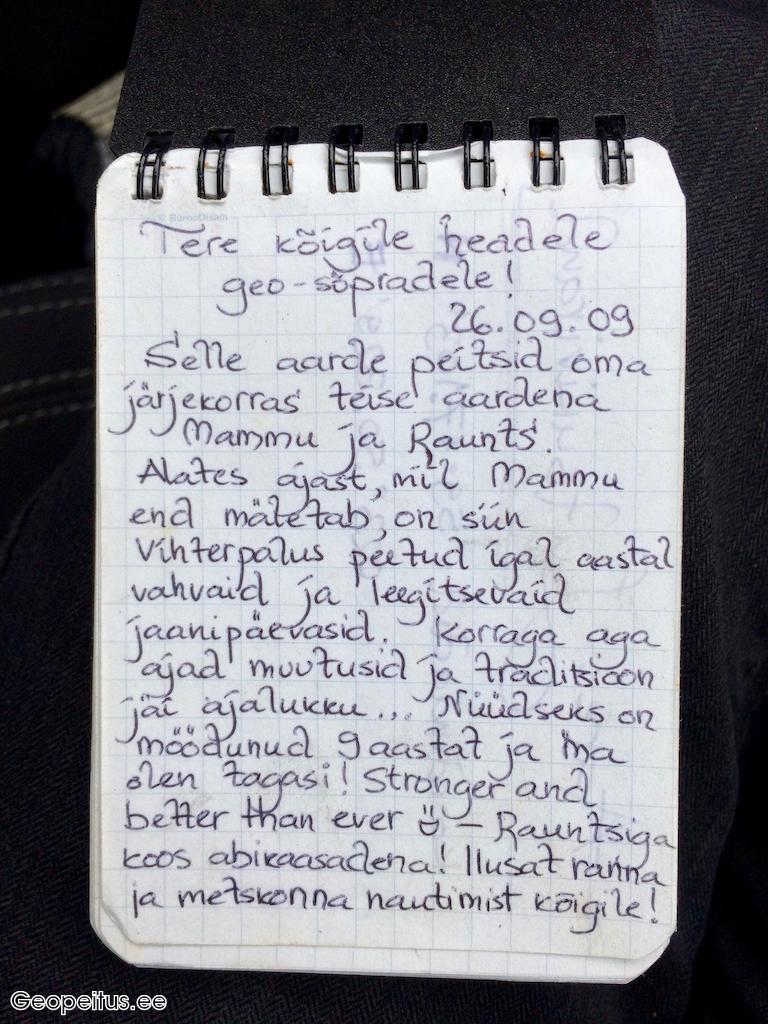 © BürooDisain
Tere kõigile headele
geo-sõpradele!
26.09.09
Selle aarde peitsid oma
järjekorras teise aardena
Mammu ja Raunts.
Alates ajast, mil Mammu
end mäletab, on siin
Vihterpalus peetud igal aastal
vahvaid ja leegitsevaid
jaanipäevasid. Korraga aga
ajad muutusid ja traditsioon
jäi ajalukku... Nüüdseks on
möödunud 9 aastat ja ma
olen tagasi! Stronger and
better than ever — Rauntsiga
koos abikaasadena! Ilusat ranna
ja metskonna nautimist kõigile!
Geopeitus.ee